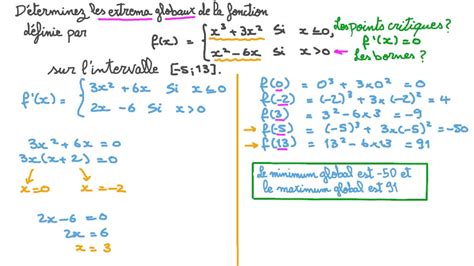 Déterminez les extrema globaux de la fonction
définie par
f(x) = { x³ + 3x² si x ≤ 0,
x² - 6x si x > 0
Les points critiques ?
f'(x) = 0
Les bornes ?
sur l'intervalle [-5 ; 13].
f'(x) = { 3x² + 6x si x ≤ 0
2x - 6 si x > 0
3x² + 6x = 0
3x(x + 2) = 0
x = 0 x = -2
2x - 6 = 0
2x = 6
x = 3
f(0) = 0³ + 3x0² = 0
f(-2) = (-2)³ + 3x(-2)² = 4
f(3) = 3² - 6x3 = -9
→ f(-5) = (-5)³ + 3x(-5)² = -50
→ f(13) = 13² - 6x13 = 91
Le minimum global est -50 et
le maximum global est 91